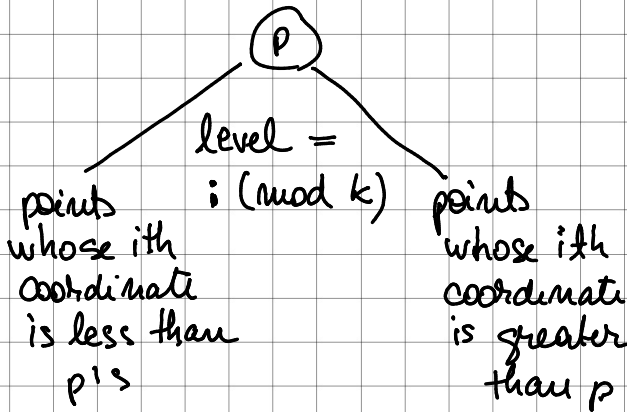 p
level =
i (mod k)
points
whose ith
coordinate
is less than
p's
points
whose ith
coordinate
is greater
than p